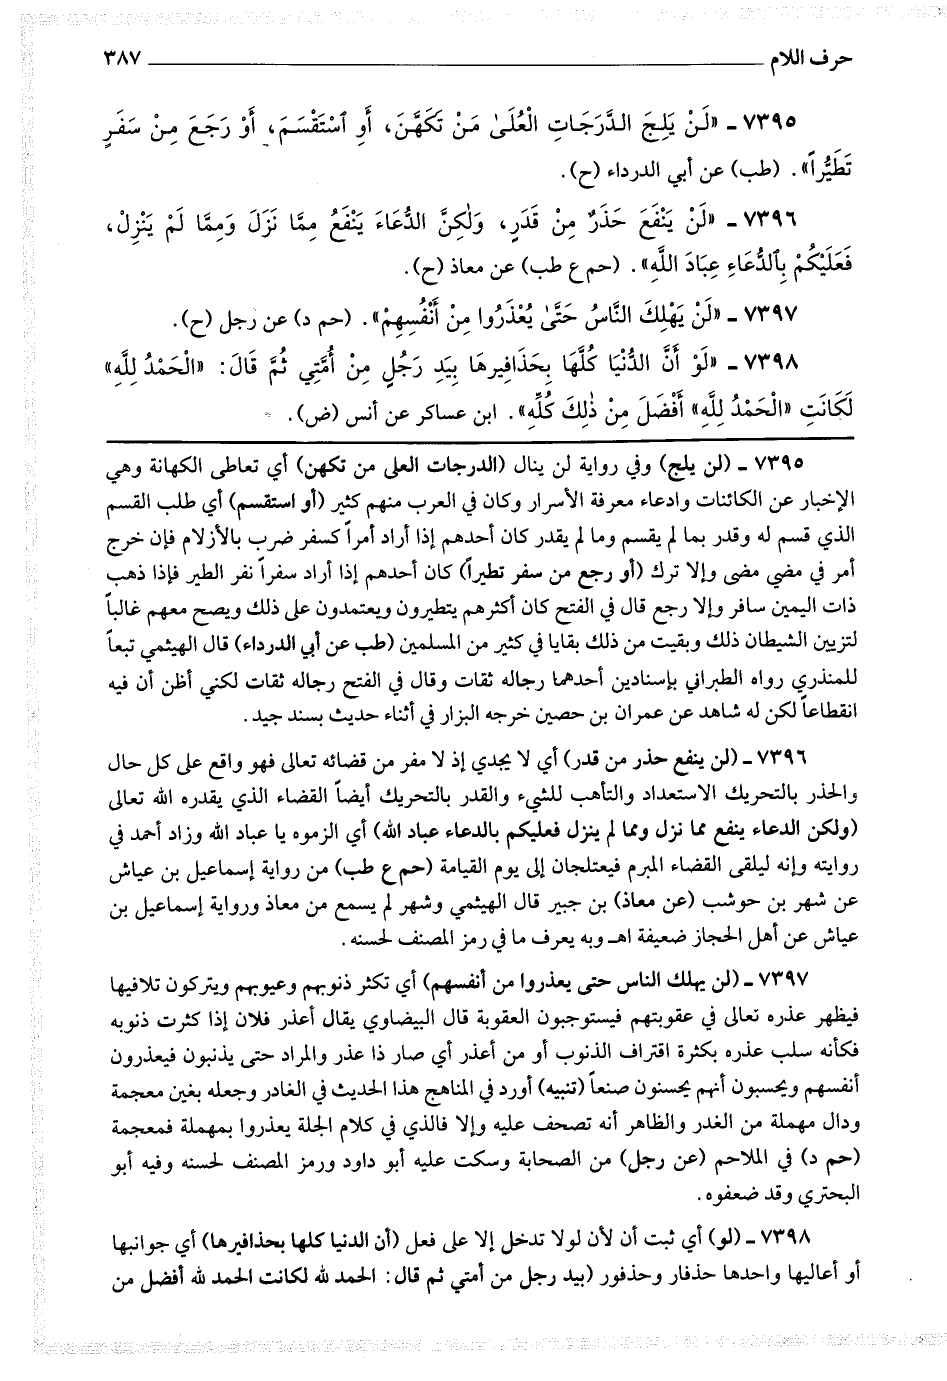 حرف اللام ٣٨٧
٧٣٩٥ ـ «لَنْ يَلِجَ الدَّرَجَاتِ الْعُلَىٰ مَنْ تَكَهَّنَ، أَوِ ٱسْتَقْسَمَ، أَوْ رَجَعَ مِنْ سَفَرٍ
تَطَيُّراً». (طب) عن أبي الدرداء (ح).
٧٣٩٦ ـ «لَنْ يَنْفَعَ حَذَرٌ مِنْ قَدَرٍ، وَلٰكِنَّ الدُّعَاءَ يَنْفَعُ مِمَّا نَزَلَ وَمِمَّا لَمْ يَنْزِلْ،
فَعَلَيْكُمْ بِٱلدُّعَاءِ عِبَادَ اللَّهِ». (حم ع طب) عن معاذ (ح).
٧٣٩٧ ـ «لَنْ يَهْلِكَ النَّاسُ حَتَّىٰ يُعْذَرُوا مِنْ أَنْفُسِهِمْ». (حم د) عن رجل (ح).
٧٣٩٨ ـ «لَوْ أَنَّ الدُّنْيَا كُلَّهَا بِحَذَافِيرِهَا بِيَدِ رَجُلٍ مِنْ أُمَّتِي ثُمَّ قَالَ: «الْحَمْدُ لِلَّهِ»
لَكَانَتِ «الْحَمْدُ لِلَّهِ» أَفْضَلَ مِنْ ذٰلِكَ كُلِّهِ». ابن عساكر عن أنس (ض).
٧٣٩٥ ـ (لن يلج) وفي رواية لن ينال (الدرجات العلى من تكهن) أي تعاطى الكهانة وهي
الإخبار عن الكائنات وادعاء معرفة الأسرار وكان في العرب منهم كثير (أو استقسم) أي طلب القسم
الذي قسم له وقدر بما لم يقسم وما لم يقدر كان أحدهم إذا أراد أمراً كسفر ضرب بالأزلام فإن خرج
أمر في مضي مضى وإلا ترك (أو رجع من سفر تطيراً) كان أحدهم إذا أراد سفراً نفر الطير فإذا ذهب
ذات اليمين سافر وإلا رجع قال في الفتح كان أكثرهم يتطيرون ويعتمدون على ذلك ويصح معهم غالباً
لتزيين الشيطان ذلك وبقيت من ذلك بقايا في كثير من المسلمين (طب عن أبي الدرداء) قال الهيثمي تبعاً
للمنذري رواه الطبراني بإسنادين أحدهما رجاله ثقات وقال في الفتح رجاله ثقات لكني أظن أن فيه
انقطاعاً لكن له شاهد عن عمران بن حصين خرجه البزار في أثناء حديث بسند جيد.
٧٣٩٦ ـ (لن ينفع حذر من قدر) أي لا يجدي إذ لا مفر من قضائه تعالى فهو واقع على كل حال
والحذر بالتحريك الاستعداد والتأهب للشيء والقدر بالتحريك أيضاً القضاء الذي يقدره الله تعالى
(ولكن الدعاء ينفع مما نزل ومما لم ينزل فعليكم بالدعاء عباد الله) أي الزموه يا عباد الله وزاد أحمد في
روايته وإنه ليلقى القضاء المبرم فيعتلجان إلى يوم القيامة (حم ع طب) من رواية إسماعيل بن عياش
عن شهر بن حوشب (عن معاذ) بن جبير قال الهيثمي وشهر لم يسمع من معاذ ورواية إسماعيل بن
عياش عن أهل الحجاز ضعيفة اهـ وبه يعرف ما في رمز المصنف لحسنه.
٧٣٩٧ ـ (لن يهلك الناس حتى يعذروا من أنفسهم) أي تكثر ذنوبهم وعيوبهم ويتركون تلافيها
فيظهر عذره تعالى في عقوبتهم فيستوجبون العقوبة قال البيضاوي يقال أعذر فلان إذا كثرت ذنوبه
فكأنه سلب عذره بكثرة اقتراف الذنوب أو من أعذر أي صار ذا عذر والمراد حتى يذنبون فيعذرون
أنفسهم ويحسبون أنهم يحسنون صنعاً (تنبيه) أورد في المناهج هذا الحديث في الغادر وجعله بغين معجمة
ودال مهملة من الغدر والظاهر أنه تصحف عليه وإلا فالذي في كلام الجلة يعذروا بمهملة فمعجمة
(حم د) في الملاحم (عن رجل) من الصحابة وسكت عليه أبو داود ورمز المصنف لحسنه وفيه أبو
البحتري وقد ضعفوه.
٧٣٩٨ ـ (لو) أي ثبت أن لأن لولا تدخل إلا على فعل (أن الدنيا كلها بحذافيرها) أي جوانبها
أو أعاليها واحدها حذفار وحذفور (بيد رجل من أمتي ثم قال: الحمد لله لكانت الحمد لله أفضل من